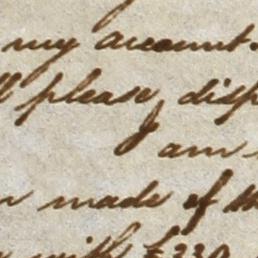 my account.
please disp
I am
made of th
with £330